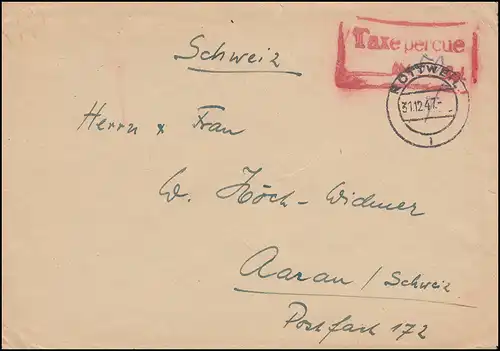 Taxe percue
Schweiz
ROTTWEIL
31.12.47.-
1
Herrn & Frau
W. Höch-Widmer
Aarau / Schweiz
Postfach 172